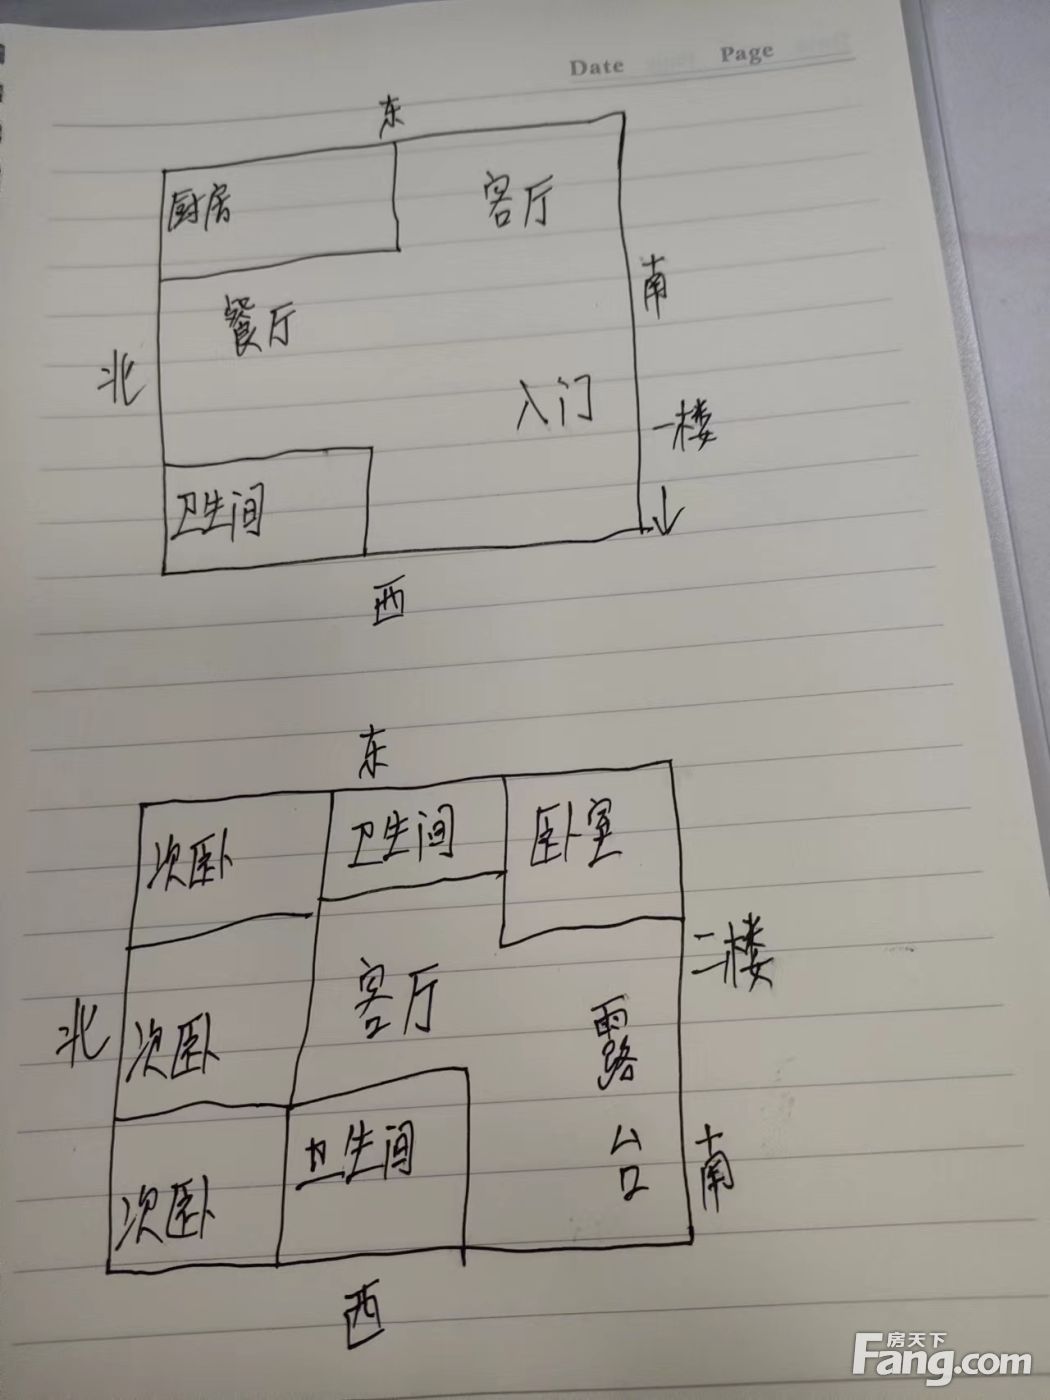 Date Page
东
厨房
客厅
南
餐厅
北
入门
一楼
卫生间
西
东
次卧
卫生间
卧室
二楼
客厅
北
次卧
露台
卫生间
南
次卧
西
房天下
Fang.com